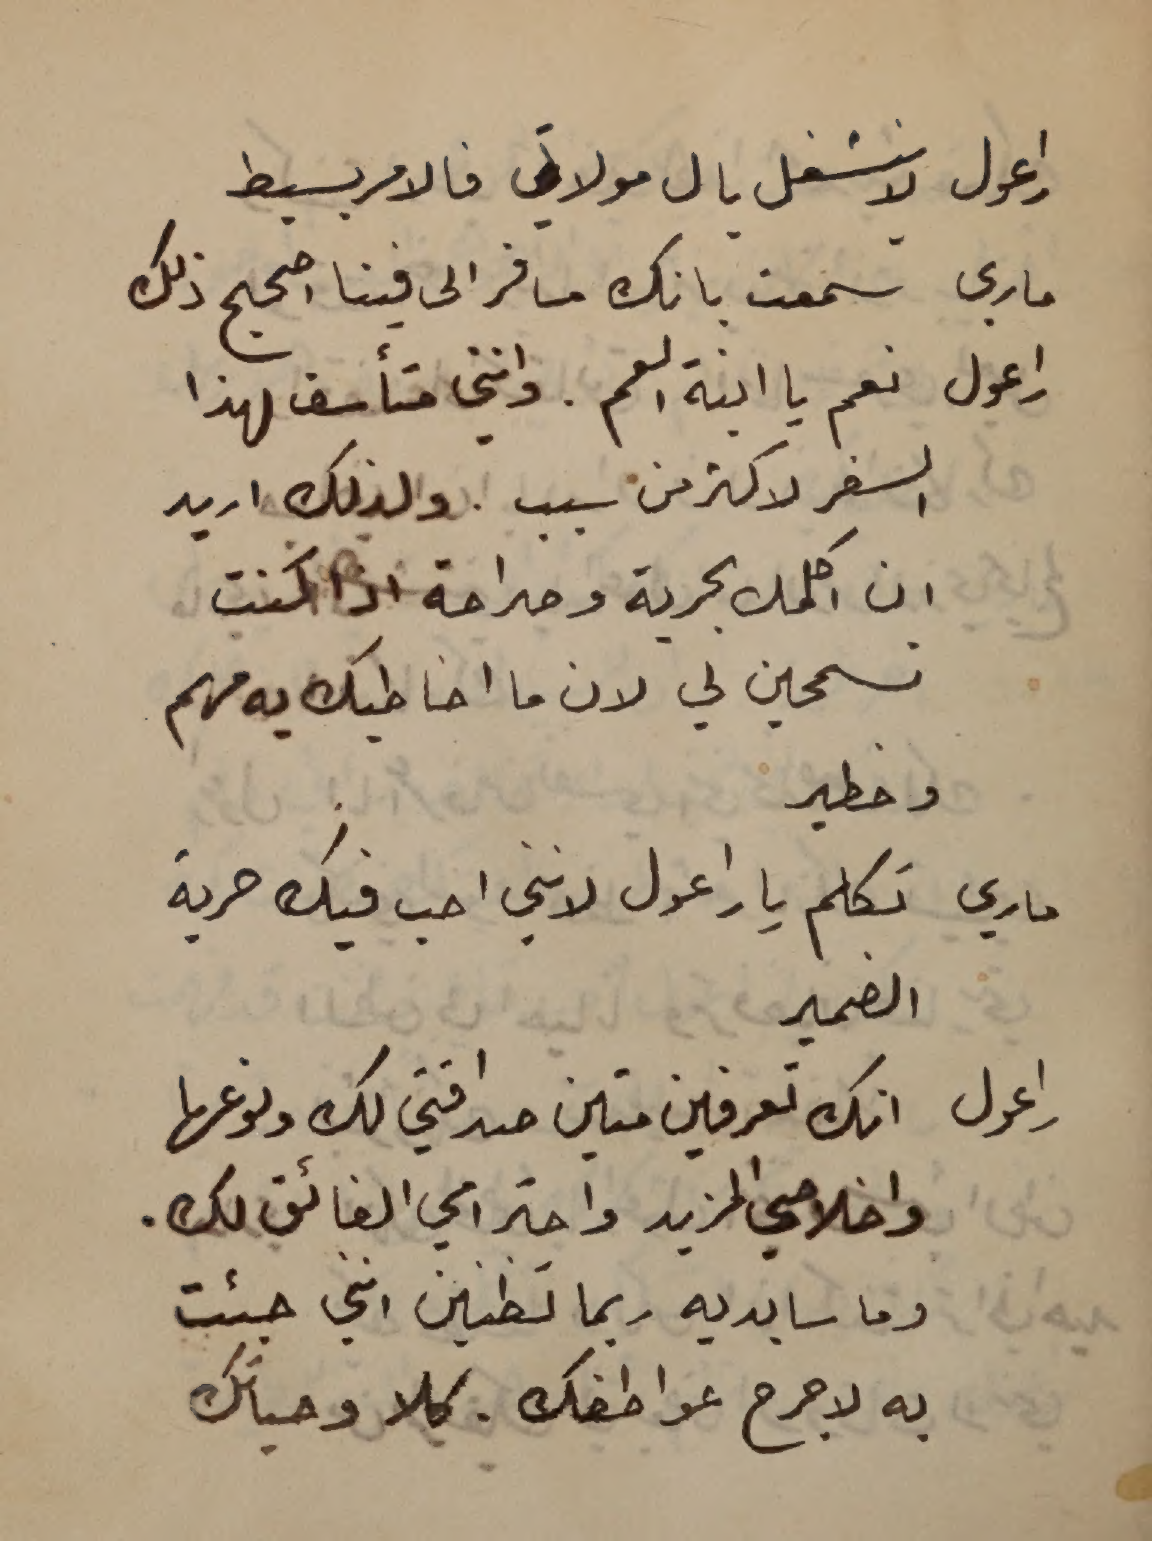 راعول لا ينشغل بال مولاتي فالامر بسيط
ماري سمعت بانك مسافر الى فينا اصحيح ذلك
راعول نعم يا ابنة العم . وانني متأسف لهذا
السفر لاكثر من سبب . ولذلك اريد
ان اكلمك بحرية وصراحة اذا كنت
تسمحين لي لان ما اخاطبك به مهم
وخطير
ماري تكلم يا راعول لانني احب فيك حرية
الضمير
راعول انك تعرفين متين صداقتي لك ونوعها
واخلاصي المزيد واحترامي الفائق لك .
وما سابديه ربما تظنين انني جئت
به لاجرح عواطفك . كلا وحياتك